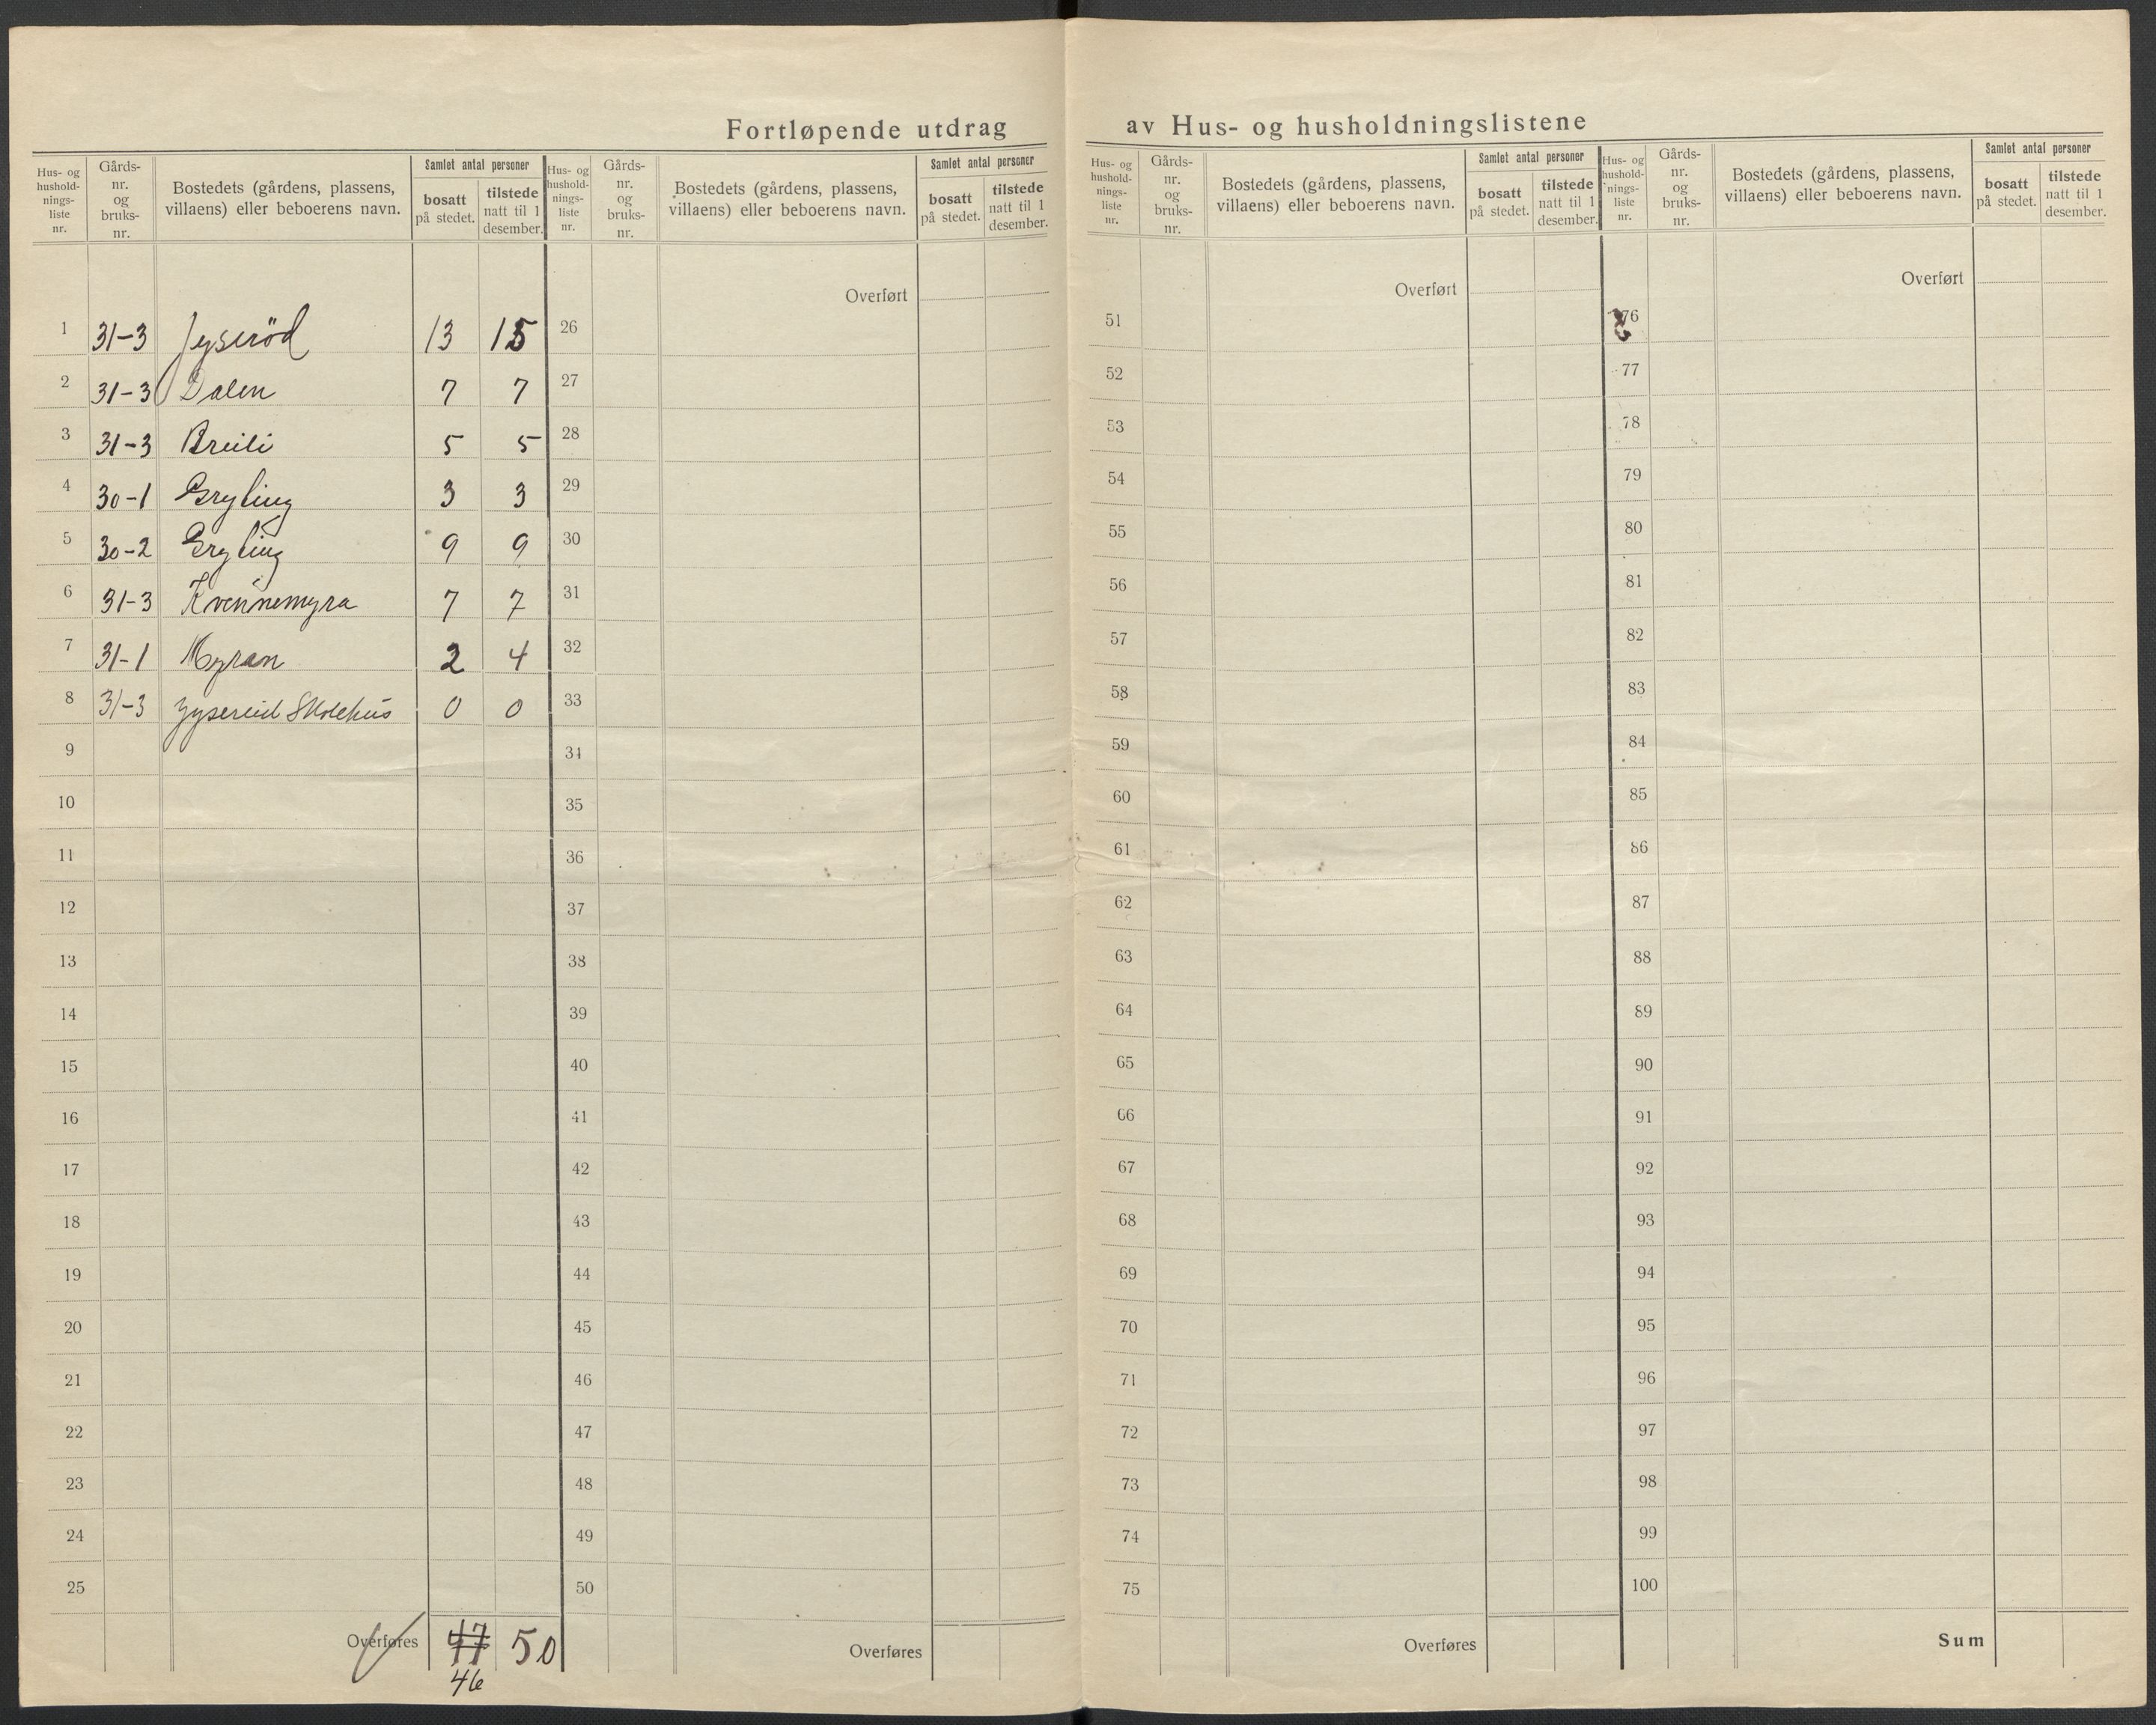 Fortløpende utdrag av Hus- og husholdningslistene
Hus- og hushold-nings-liste nr. Gårds-nr. og bruks-nr. Bostedets (gårdens, plassens, villaens) eller beboerens navn. Samlet antal personer bosatt på stedet. tilstede natt til 1 desember.
Hus- og hushold-nings-liste nr. Gårds-nr. og bruks-nr. Bostedets (gårdens, plassens, villaens) eller beboerens navn. Samlet antal personer bosatt på stedet. tilstede natt til 1 desember.
Hus- og hushold-nings-liste nr. Gårds-nr. og bruks-nr. Bostedets (gårdens, plassens, villaens) eller beboerens navn. Samlet antal personer bosatt på stedet. tilstede natt til 1 desember.
Hus- og hushold-nings-liste nr. Gårds-nr. og bruks-nr. Bostedets (gårdens, plassens, villaens) eller beboerens navn. Samlet antal personer bosatt på stedet. tilstede natt til 1 desember.
Overført Overført Overført
1 31-3 Jyseröd 13 15 26 51 76
2 31-3 Dalen 7 7 27 52 77
3 31-3 Breili 5 5 28 53 78
4 30-1 Gryting 3 3 29 54 79
5 30-2 Gryting 9 9 30 55 80
6 31-3 Kvennemyra 7 7 31 56 81
7 31-1 Myran 2 4 32 57 82
8 31-3 Jysereid Skolehus 0 0 33 58 83
9 34 59 84
10 35 60 85
11 36 61 86
12 37 62 87
13 38 63 88
14 39 64 89
15 40 65 90
16 41 66 91
17 42 67 92
18 43 68 93
19 44 69 94
20 45 70 95
21 46 71 96
22 47 72 97
23 48 73 98
24 49 74 99
25 50 75 100
Overføres 47 50 Overføres Overføres Sum
46